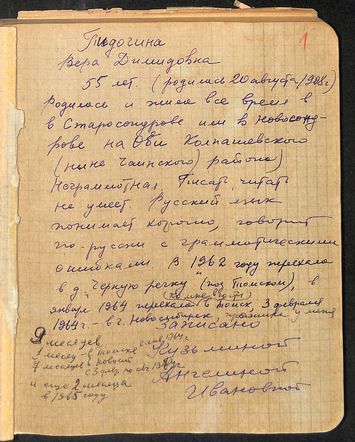 1
Пидогина
Вера Димидовна
55 лет. (родилась 20 августа 1908г)
Родилась и жила все время в
в Старосондрове или в Новосонд-
рове на Оби Колпашевского
(ныне Чаинского) района)
Неграмотная. Писать, читать
не умеет. Русский язык
понимает хорошо, говорит
по-русски с грамматическими
ошибками. В 1962 году переехала
в д. "Черную речку" (под Томском), в
январе 1964 переехала в Томск, 3 февраля
1964г. – в г. Новосибирск
Записано
Кузьминой
Ангелиной
Ивановной
9 месяцев
1 месяц в Томске
7 месяцев в Новосиб
и еще 2 месяца
в 1965 году